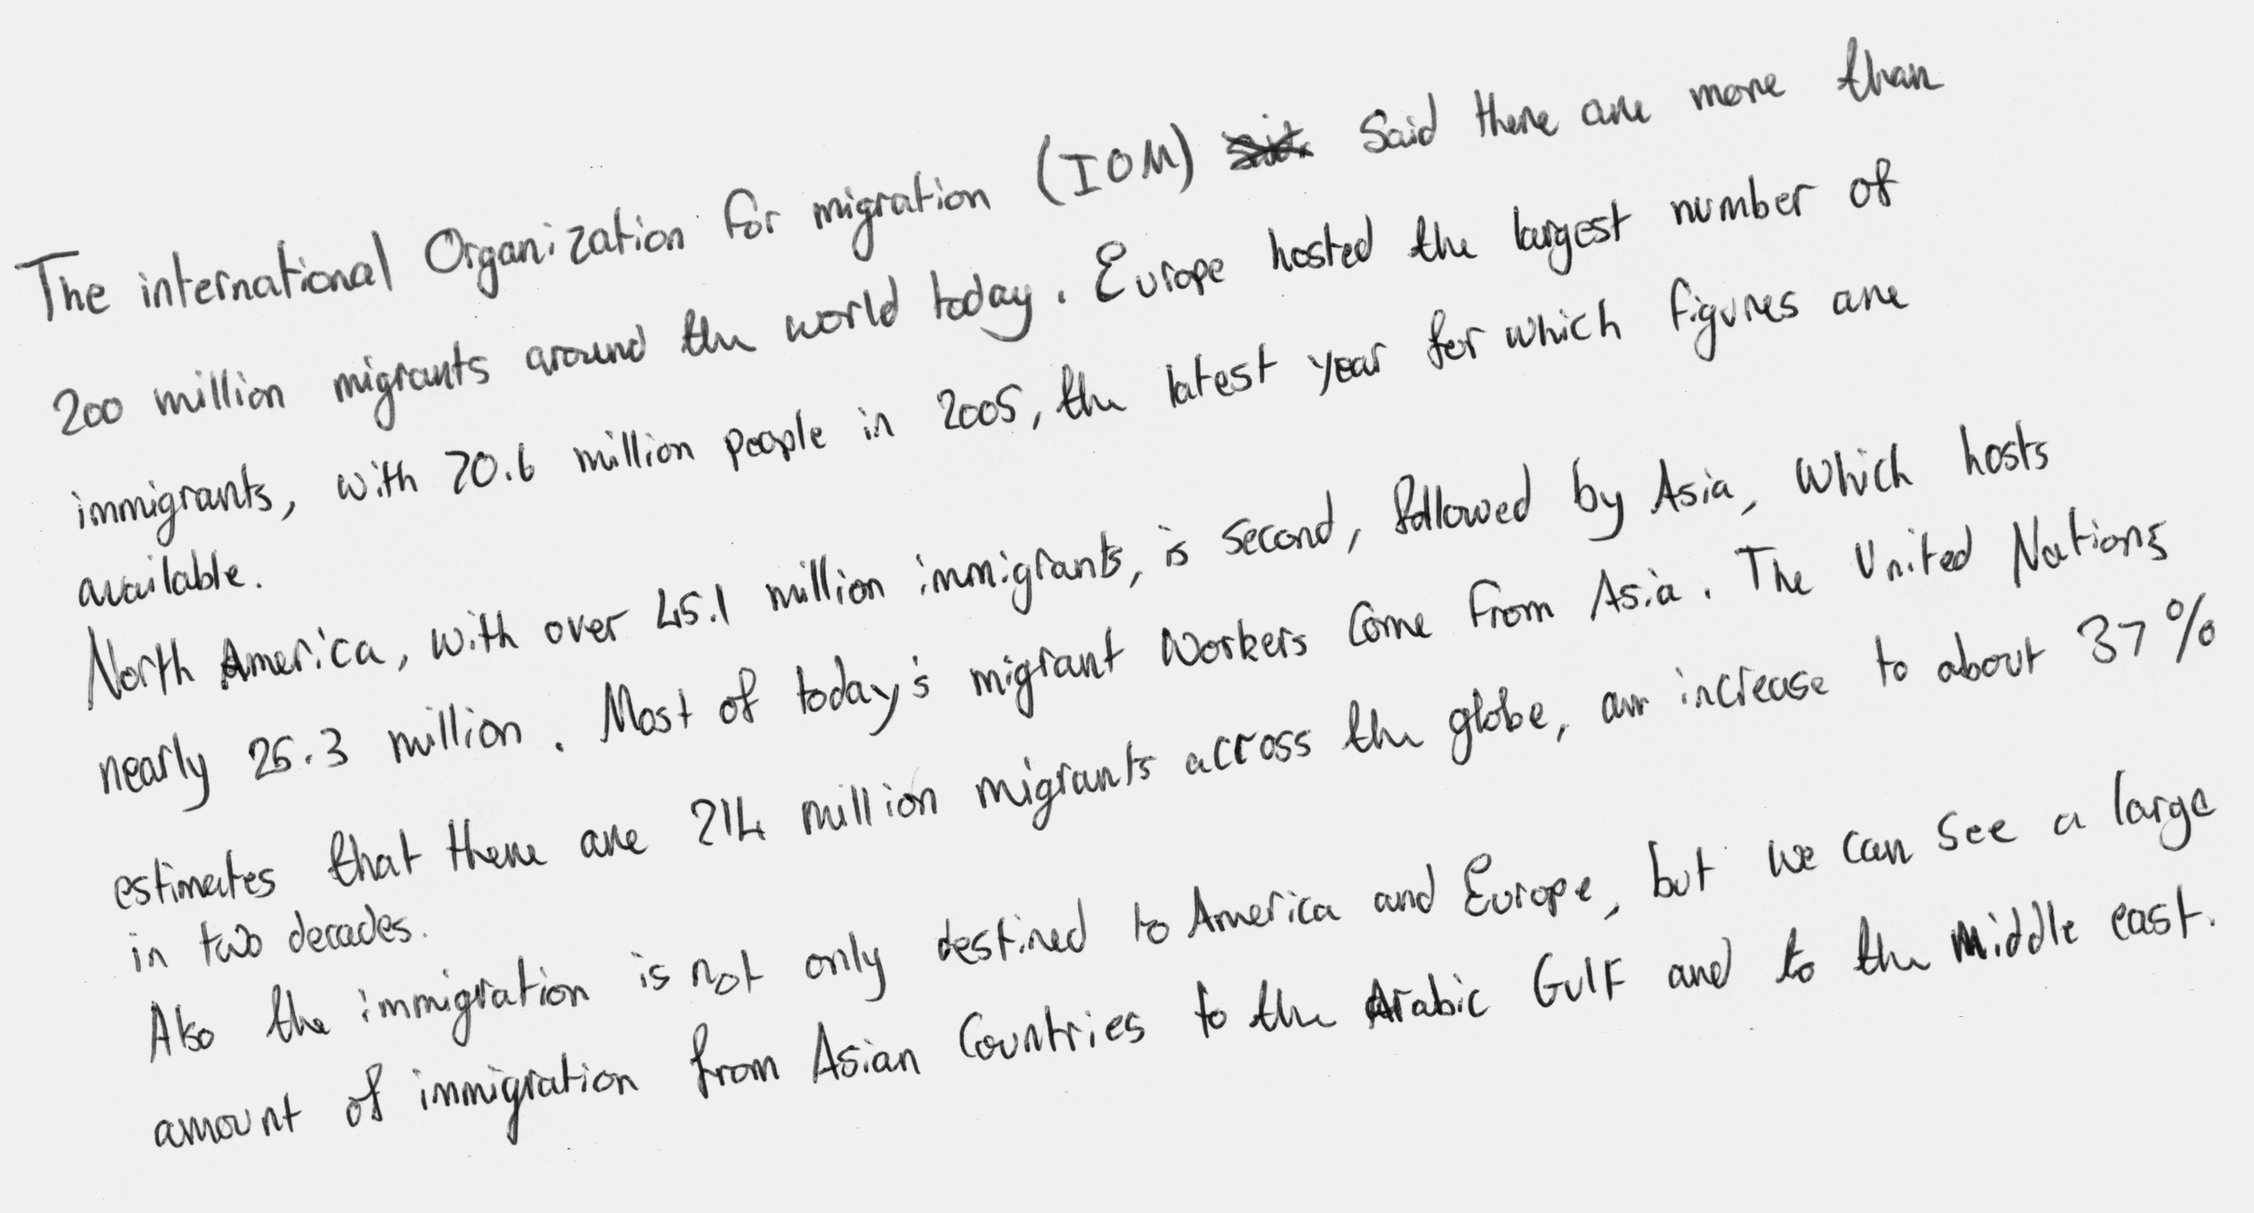 The international Organization for migration (IOM) Said there are more than
200 million migrants around the world today. Europe hosted the largest number of
immigrants, with 70.6 million people in 2005, the latest year for which figures are
available.
North America, with over 45.1 million immigrants, is second, followed by Asia, which hosts
nearly 25.3 million. Most of today's migrant workers come from Asia. The United Nations
estimates that there are 214 million migrants across the globe, an increase to about 37%
in two decades.
Also the immigration is not only destined to America and Europe, but we can see a large
amount of immigration from Asian Countries to the Arabic Gulf and to the Middle east.